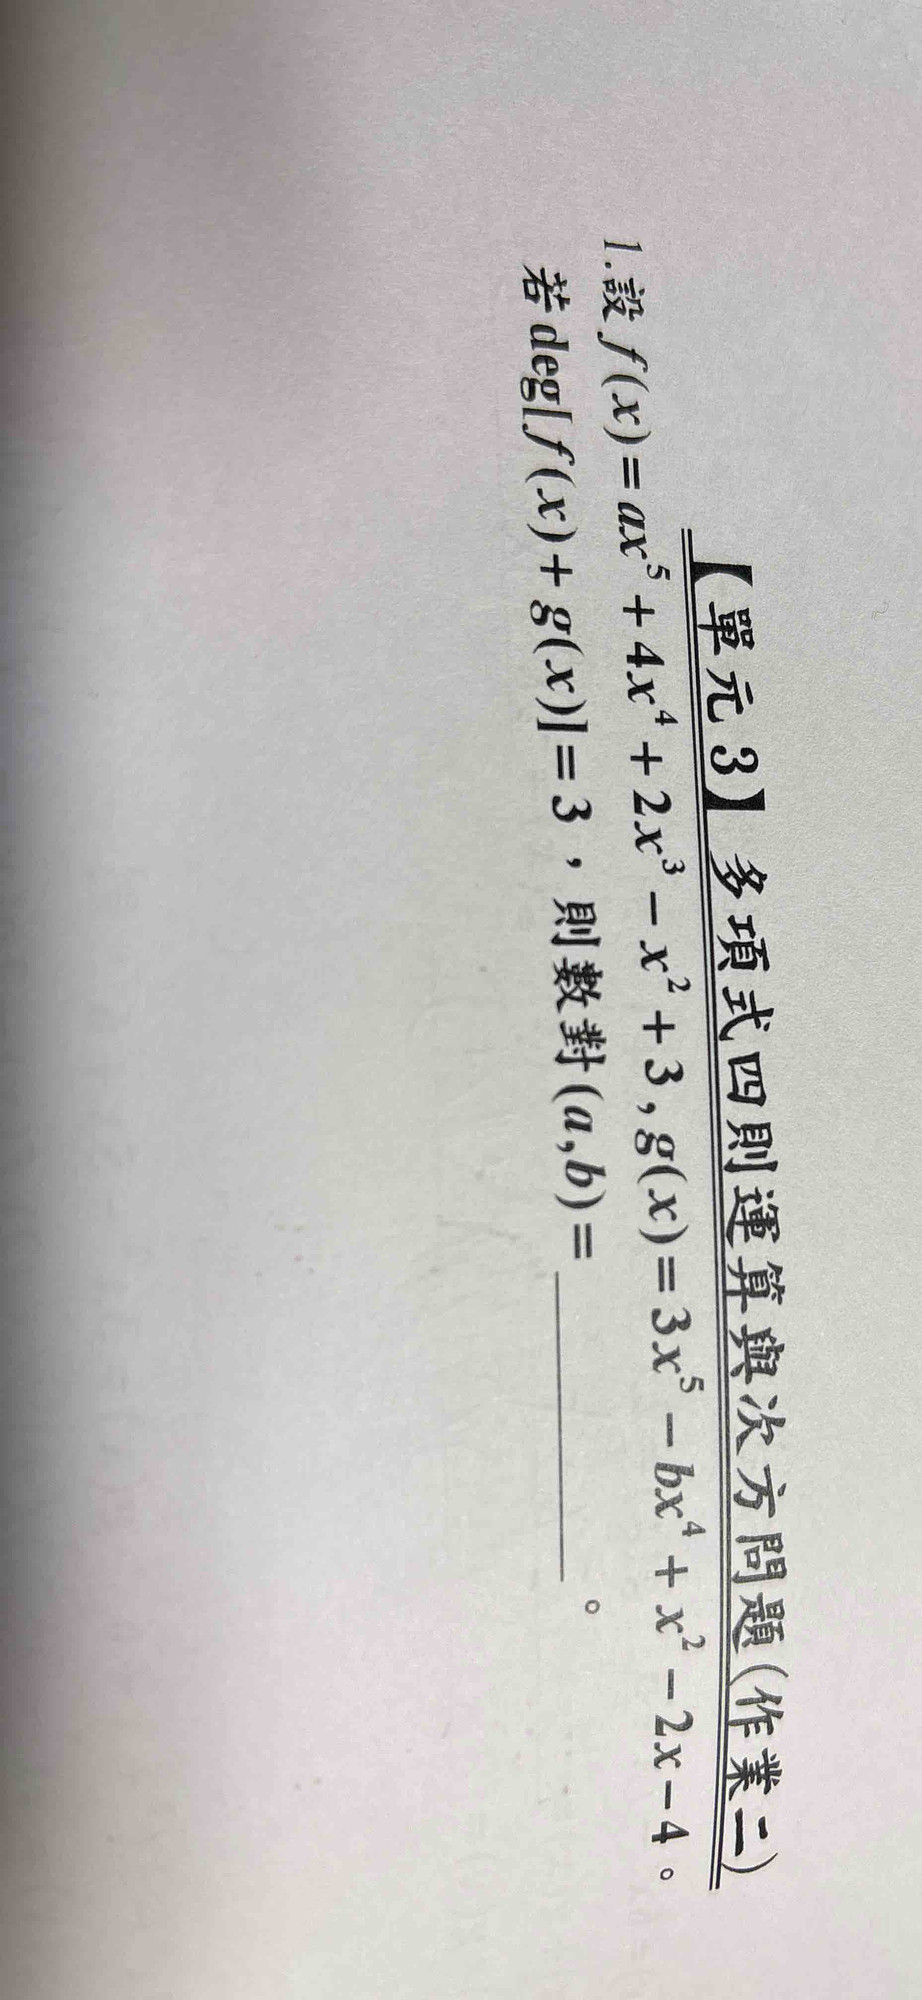 【單元3】多項式四則運算與次方問題(作業二)
1.設 f(x)=ax⁵+4x⁴+2x³−x²+3,g(x)=3x⁵−bx⁴+x²−2x−4。
若deg[f(x)+g(x)]=3，則數對(a,b)=＿＿＿＿＿。